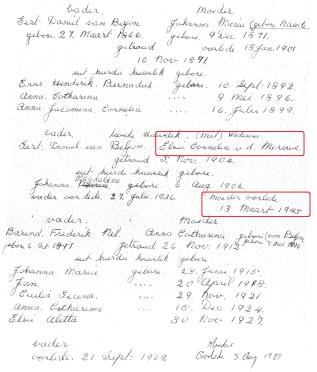 vader, Moeder
Gert. Daniel van Biljon Johanna Maria (gebore Naudé
gebore. 27. Maart 1866. gebore. 9 Des 1871.
getroud oorlede 18 Jan. 1901
10 Nov 1891
uit hierdie huwelik gebore.
Hendrik. Bernardus gebore. 10 Sept. 1892.
Anna. Catharina .... 9 Mei 1896.
Anna. Jacomina. Cornelia .... 16. Julie 1899.
vader, huwelik. (Met) Weduwe
Gert. Daniel van Biljon. Elsie Cornelia v. d. Merwe.
getroud 5. Nov. 1904.
uit hierdie huwelik gebore.
Magdalena
Johanna gebore 6 Aug. 1906.
vader oorlede. 27. Julie. 1936. Moeder oorlede
13 Maart 1945.
vader. Moeder
Barend. Frederik Nel. Anna Catharina gebore
getroud 26. Nov. 1912
uit hierdie huwelik gebore.
Johanna Maria gebore. 28. Junie 1915.
20 April 1918.
Cecilia .... 29. Nov. 1921
Anna. Catharina .... 15. Des 1924.
Elsie Aletta 30 Nov 1927.
vader Moeder
oorlede. 21. Sept. 1969. Oorlede 5 Aug 1989